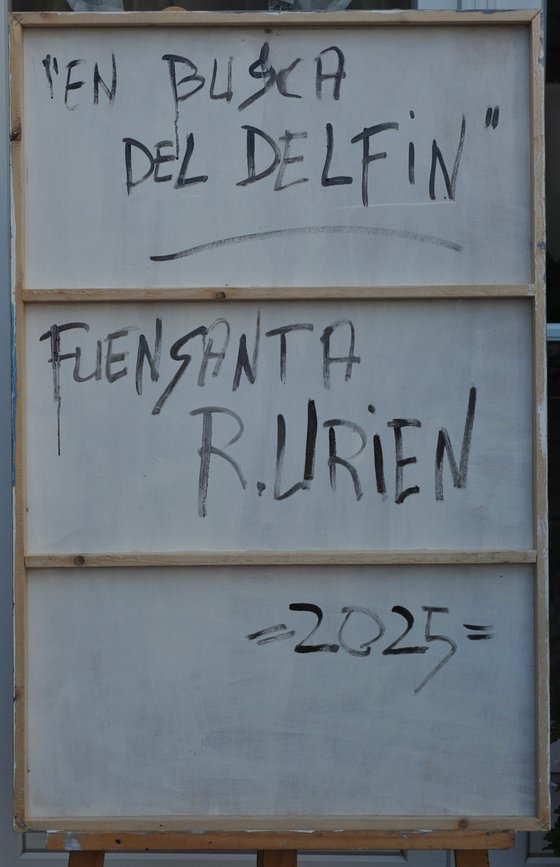 "EN BUSCA
DEL DELFiN"
FUENSANTA
R.URiEN
=2025=